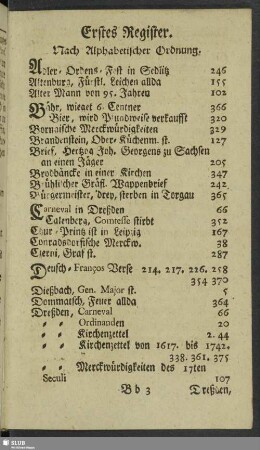 Erstes Register.
Nach Alphabetischer Ordnung.
Adler-Ordens-Fest in Sedlitz 246
Altenburg, Fürstl. Leichen allda 155
Alter Mann von 95. Jahren 102
Bähr, wieget 6. Centner 366
Bier, wird Pfundweise verkaufft 320
Bornaische Merckwürdigkeiten 329
Brandenstein, Ober-Küchenm. st. 127
Brief, Hertzog Joh. Georgens zu Sachsen
an einen Jäger 205
Brodbäncke in einer Kirchen 347
Brühlischer Gräfl. Wappenbrief 242
Bürgermeister, drey, sterben in Torgau 365
Carneval in Dreßden 66
Calenberg, Comtesse stirbt 352
Chur-Printz ist in Leipzig 167
Conradsdorfische Merckw. 38
Cieroi, Graf st. 287
Deutsch-François Verse 214. 217. 226. 258
354 370
Dießbach, Gen. Major st. 5
Dommatsch, Feuer allda 364
Dreßden, Carneval 66
" " Ordinanden 20
" " Kirchenzettel 2. 44
" " Kirchenzettel von 1617. bis 1742.
338. 361. 375
" " Merckwürdigkeiten des 17ten
Seculi 107
B b 3 Dreßden,
SLUB